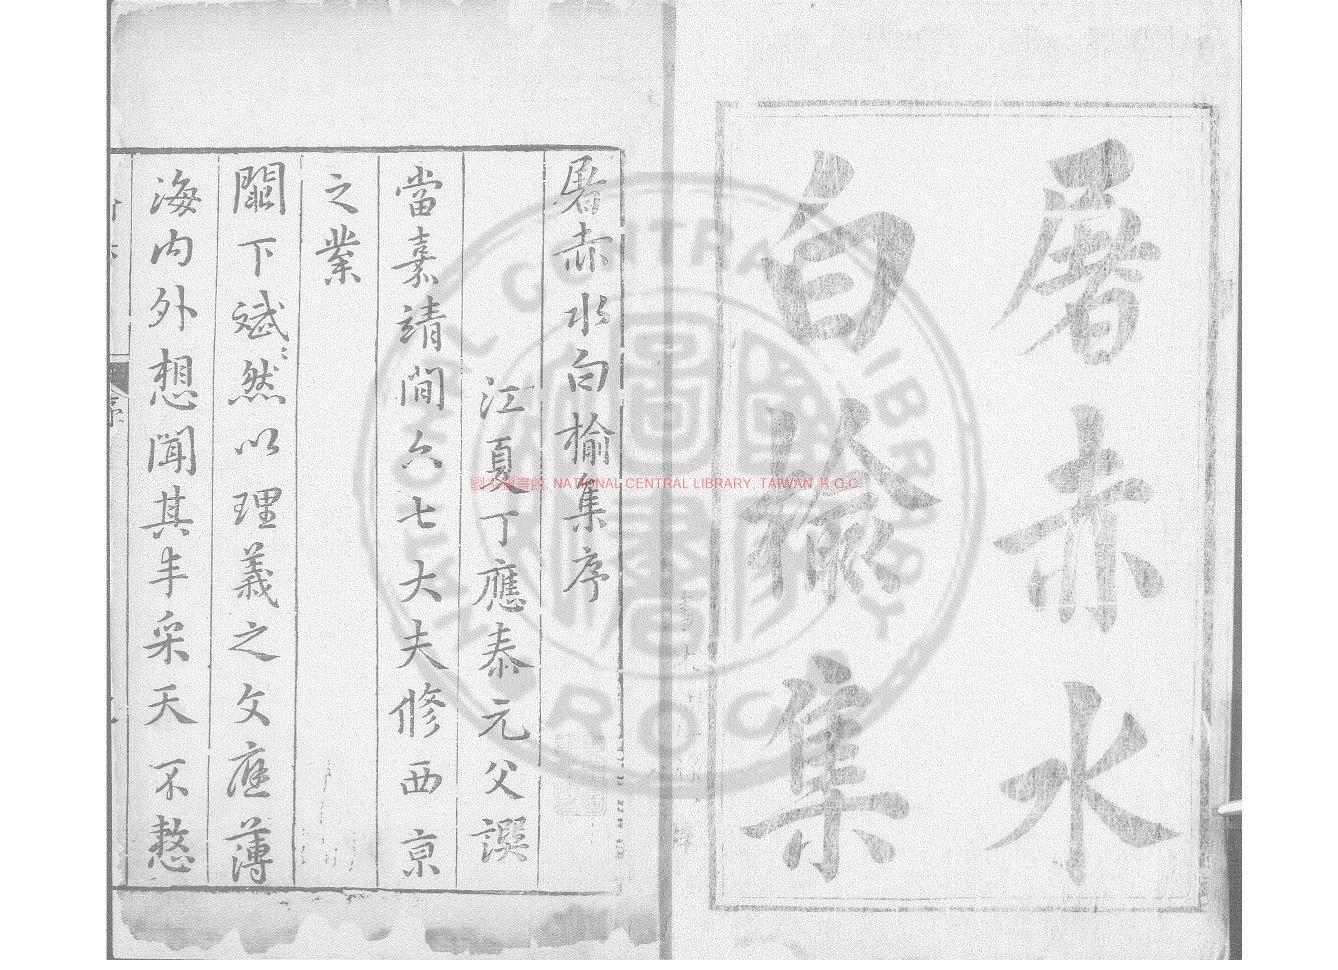 屠赤水
白榆集
屠赤水白榆集序
江夏丁應泰元父譔
當嘉靖間六七大夫修西京
之業
闕下斌〻然以理義之文應薄
海內外想聞其丰采天不憗
序
國家圖書館 NATIONAL CENTRAL LIBRARY, TAIWAN, R.O.C.
NATIONAL CENTRAL LIBRARY
ROC